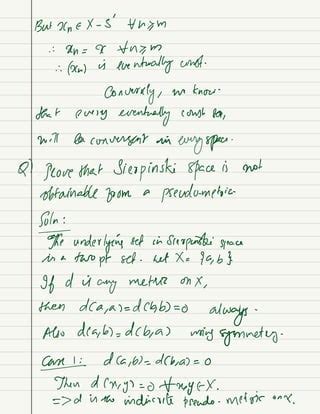 But xₙ ∈ X - S' ∀ n ≥ m
∴ xₙ = x ∀ n ≥ m
∴ (xₙ) is eventually const.
Conversely, we know
that every eventually const
will be convergent in every space.
Q) Prove that Sierpinski space is not
obtainable from a pseudometric.
Soln:
The underlying set in Sierpinski space
is a two pt set. Let X = {a,b}.
If d is any metric on X,
then d(a,a) = d(b,b) = 0 always.
Also d(a,b) = d(b,a) using symmetry.
Case 1: d(a,b) = d(b,a) = 0
Then d(x,y) = 0 ∀ x,y ∈ X.
=> d is the indiscrete pseudo-metric on X.